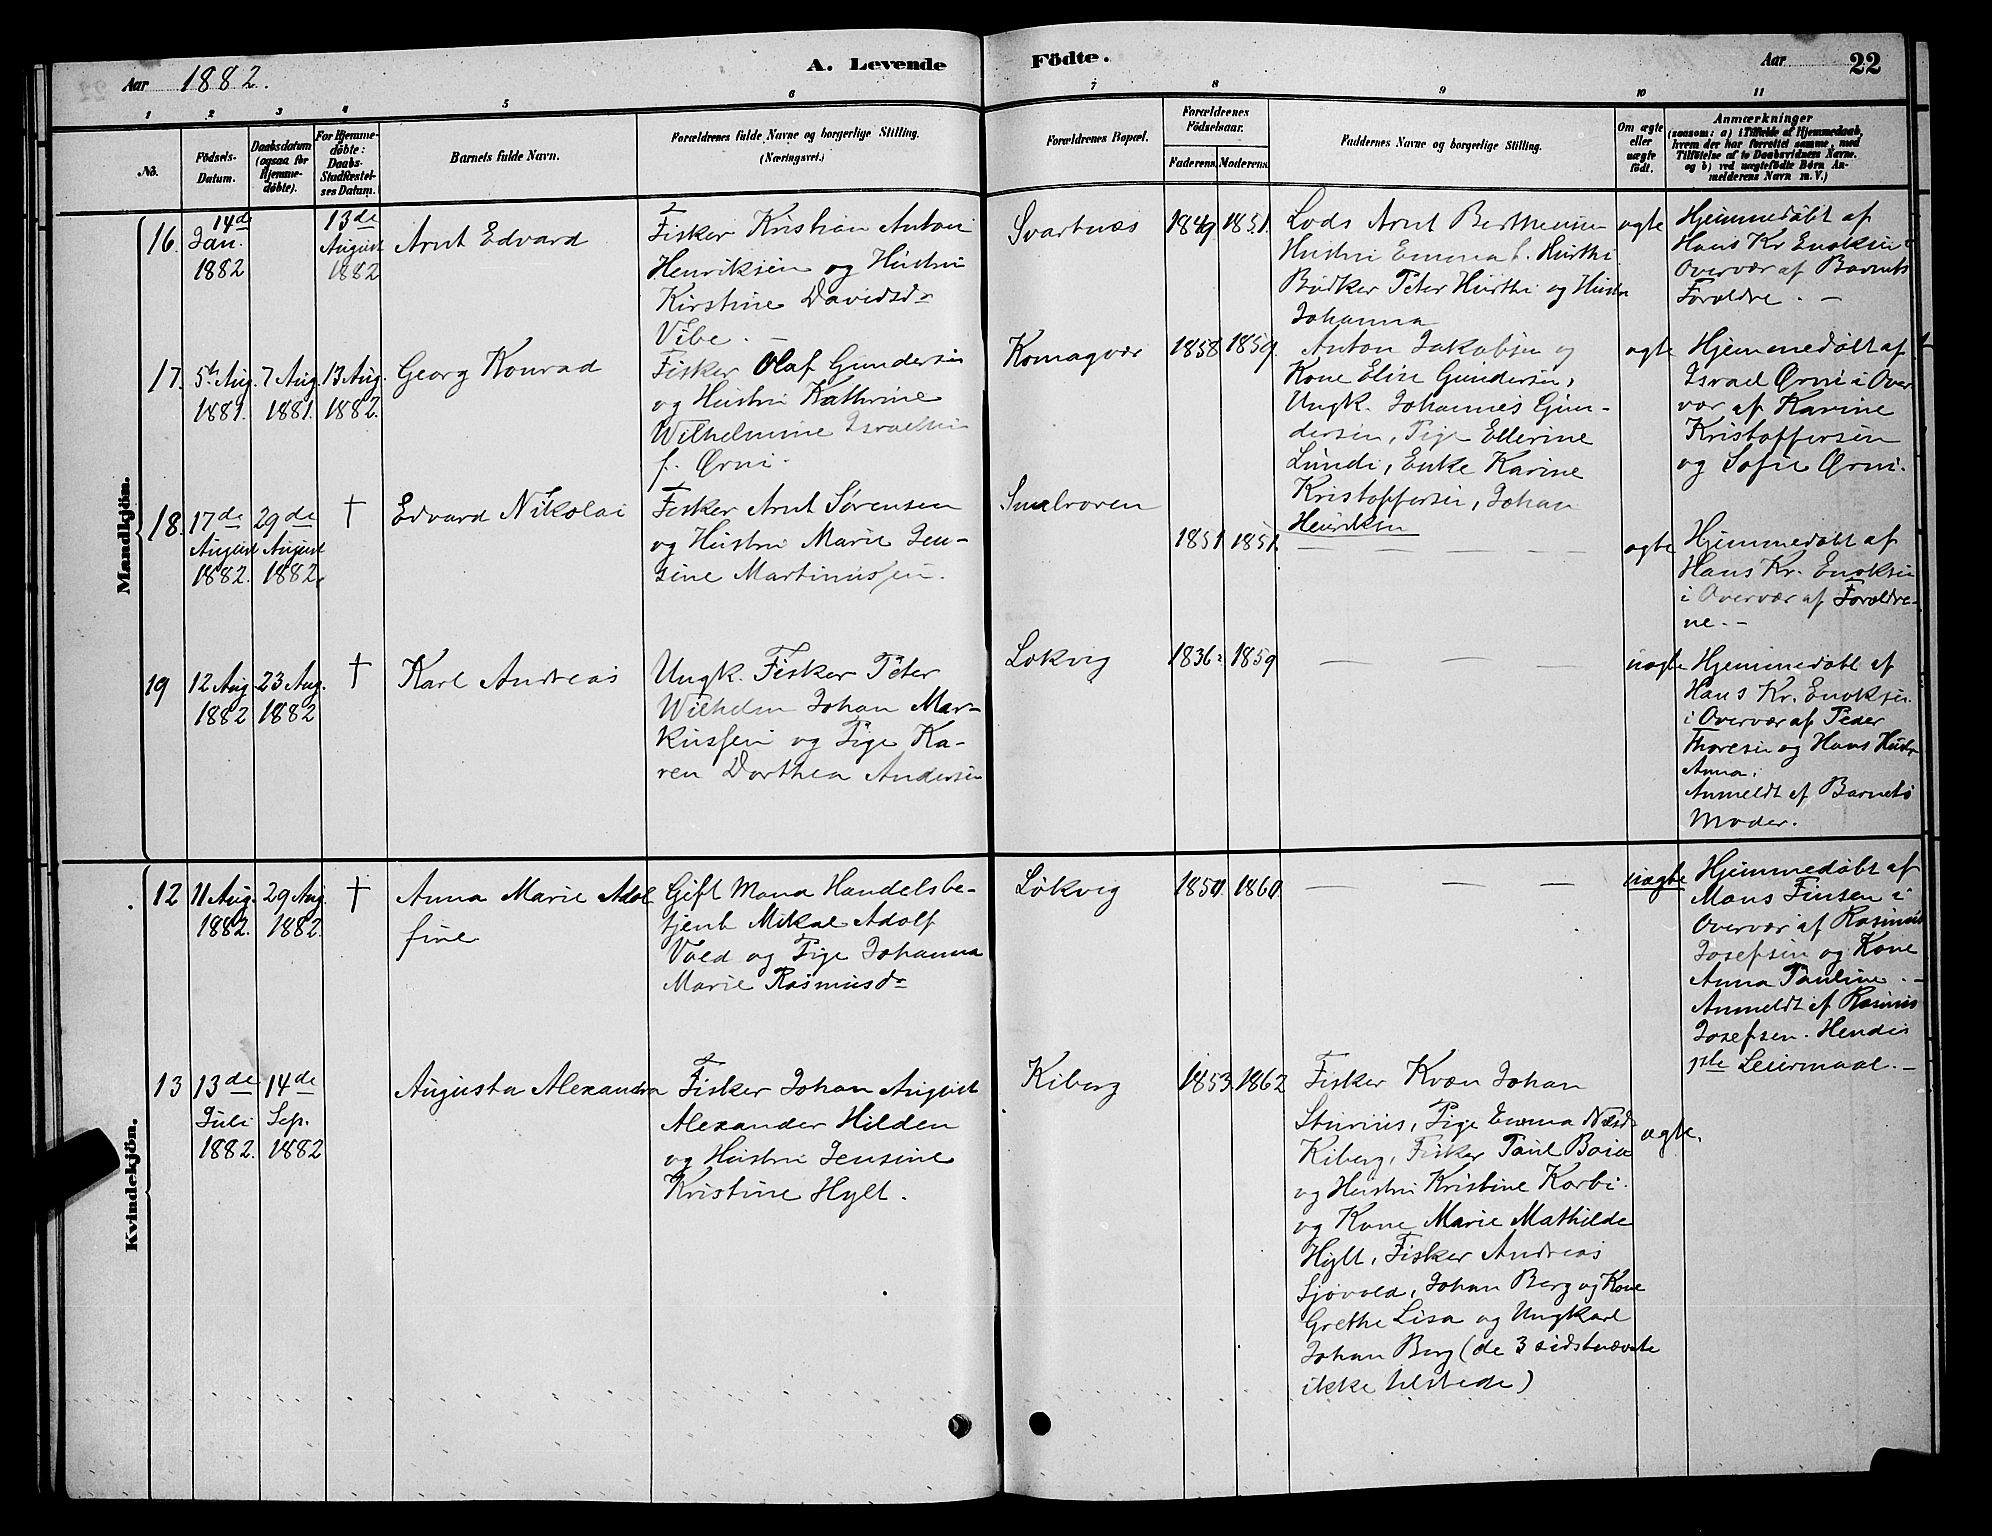 Aar 1882.
A. Levende Födte.
Aar 22
1 2 3 4 5 6 7 8 9 10 11
No.
Födsels-Datum.
Daabsdatum (ogsaa for Hjemme-döbte).
For Hjemme-döbte: Daabs-Stadfæstel-ses Datum.
Barnets fulde Navn.
Forældrenes fulde Navne og borgerlige Stilling.
(Næringsvei.)
Forældrenes Bopæl.
Forældrenes Födselsaar.
Faderens. Moderens.
Faddernes Navne og borgerlige Stilling.
Om ægte eller uægte födt.
Anmærkninger
(saasom: a) i Tilfælde af Hjemmedaab,
hvem der har forrettet samme, med
Tilföielse af to Daabsvidners Navne.
og b) ved uægtefödte Börn An-
melderens Navn m. V.)
Mandkjön.
16. 14de Jan. 1882
13de August 1882
Arnt Edvard
Fisker Kristian Anton
Henriksen og Hustru
Kirstine Davidsdr
Vibe. –
Svartnæs
1849 1851.
Lods Arnt Berthensen
Hustru Emma f. Hurthi
Bødker Peter Hurthi og Hustru
Johanna
ægte
Hjemmedøbt af
Hans Kr Enoksen i
Overvær af Barnets
Forældre. –
17. 5te Aug. 1881.
7 Aug. 1881.
13 Aug. 1882.
Georg Konrad
Fisker Olaf Gundersen
og Hustru Kathrine
Wilhelmine Israelsen
f. Ørni.
Komagvær
1858 1859.
Anton Jakobsen og
Kone Elise Gundersen,
Ungk. Johannes Gun-
dersen, Pige Ellerine
Lundi, Enke Karine
Kristoffersen, Johan
Henriksen
ægte
Hjemmedøbt af
Israel Ørni i Over
vær af Karine
Kristoffersen
og Sofie Ørni.
18. 17de August 1882.
29de August 1882.
†
Edvard Nikolai
Fisker Arnt Sørensen
og Hustru Marie Jen-
sine Martinussen.
Smelroren
1851 1851.
— — — — —
ægte
Hjemmedøbt af
Hans Kr. Enoksen
i Overvær af Forældre-
ne. –
19 12 Aug. 1882
23 Aug. 1882
†
Karl Andreas
Ungk. Fisker Peter
Wilhelm Johan Mar-
kussen og Pige Ka-
ren Dorthea Andersen
Løkvig
1836 1859
— — —
uægte
Hjemmedøbt af
Hans Kr. Enoksen
i Overvær af Peder
Thoresen og Hans Hustr
Anna.
Anmeldt af Barnets
Moder.
Kvindekjön.
12 11 Aug. 1882.
29 Aug. 1882.
†
Anna Marie Adol
fine
Gift Mand Handelsbe-
tjent Mikal Adolf
Vold og Pige Johanna
Marie Rasmusdr
Løkvig
1850. 1860.
— — —
uægte
Hjemmedøbt af
Mons Finsen i
Overvær af Rasmus
Josefsen og Kone
Anna Pauline. –
Anmeldt af Rasmus
Josefsen. Hendes
1ste Leiermaal. –
13 13de Juli 1882.
14de Sep. 1882
Augusta Alexandra
Fisker Johan August
Alexander Hilden
og Hustru Jensine
Kristine Hylt.
Kiberg
1853. 1862
Fisker Kvæn Johan
Pige Emma
Kiberg, Fisker Paul
og Hustru Kristine Korbi.
og Kone Marie Mathilde
Hylt, Fisker Andreas
Sjøvold, Johan Berg og Kone
Grethe Lisa og Ungkarl
Johan Berg (de 3 sidstnævnte
ikke tilstede)
ægte.